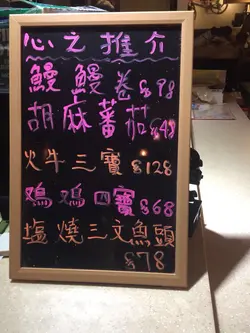 心之推介
鰻鰻卷 $98
胡麻蕃茄 $48
火牛三寶 $128
鷄鷄四寶 $68
塩燒三文魚頭
$78